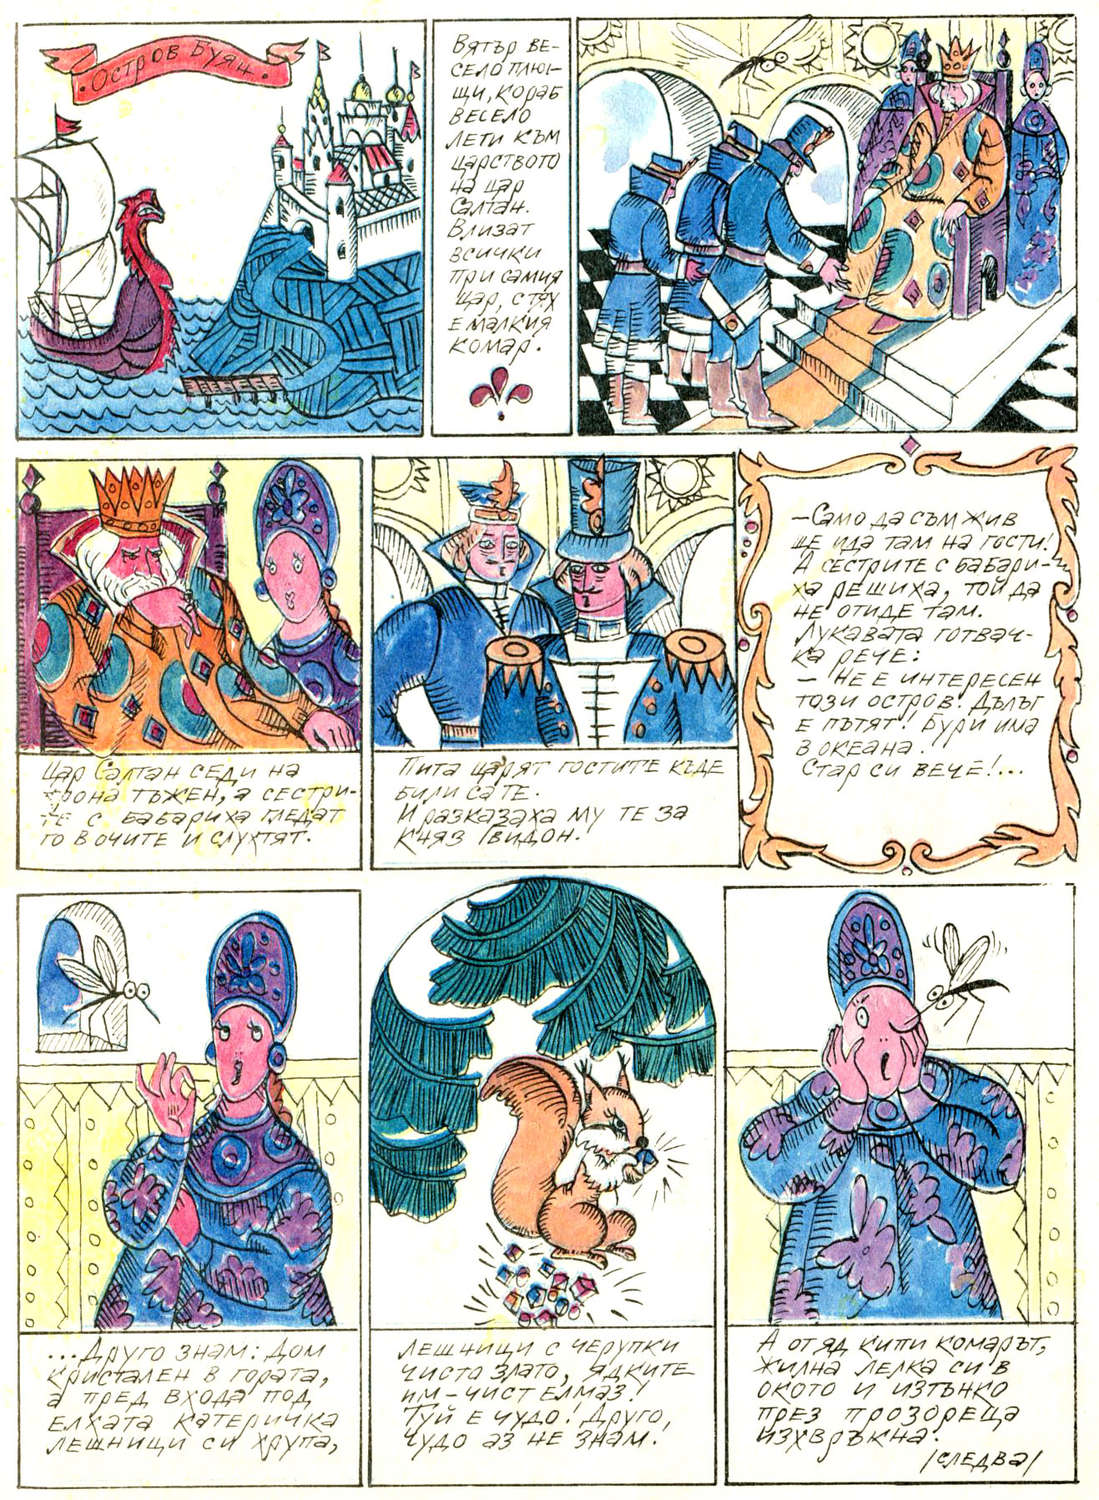 Остров Буян.
Вятър ве-
село плю-
щи, кораб
весело
лети към
царството
на цар
Салтан.
Влизат
всички
при самия
цар, с тях
е малкия
комар.
Цар Салтан седи на
трона тъжен, а сестри-
те с бабариха гледат
го в очите и слухтят.
Пита царят гостите къде
били са те.
И разказаха му те за
княз Гвидон.
– Само да съм жив
ще ида там на гости!
А сестрите с бабари-
ха решиха, той да
не отиде там.
Лукавата готвач-
ка рече:
– Не е интересен
този остров! Дълъг
е пътят! Бури има
в океана.
Стар си вече!...
...Друго знам: Дом
кристален в гората,
а пред входа под
елхата катеричка
лешници си хрупа,
лешници с черупки
чисто злато, ядките
им – чист елмаз!
Туй е чудо! Друго,
чудо аз не знам!
А от яд кипи комарът,
жилна лелка си в
окото и изтънко
през прозореца
изхвръкна!
/следва/